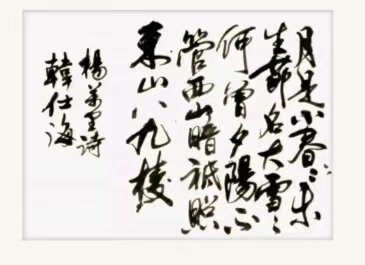 月是小春〻未
生節名大雪〻
何曾夕陽不
管西山暗祗照
東山八九棱
楊萬里詩
韓仕海